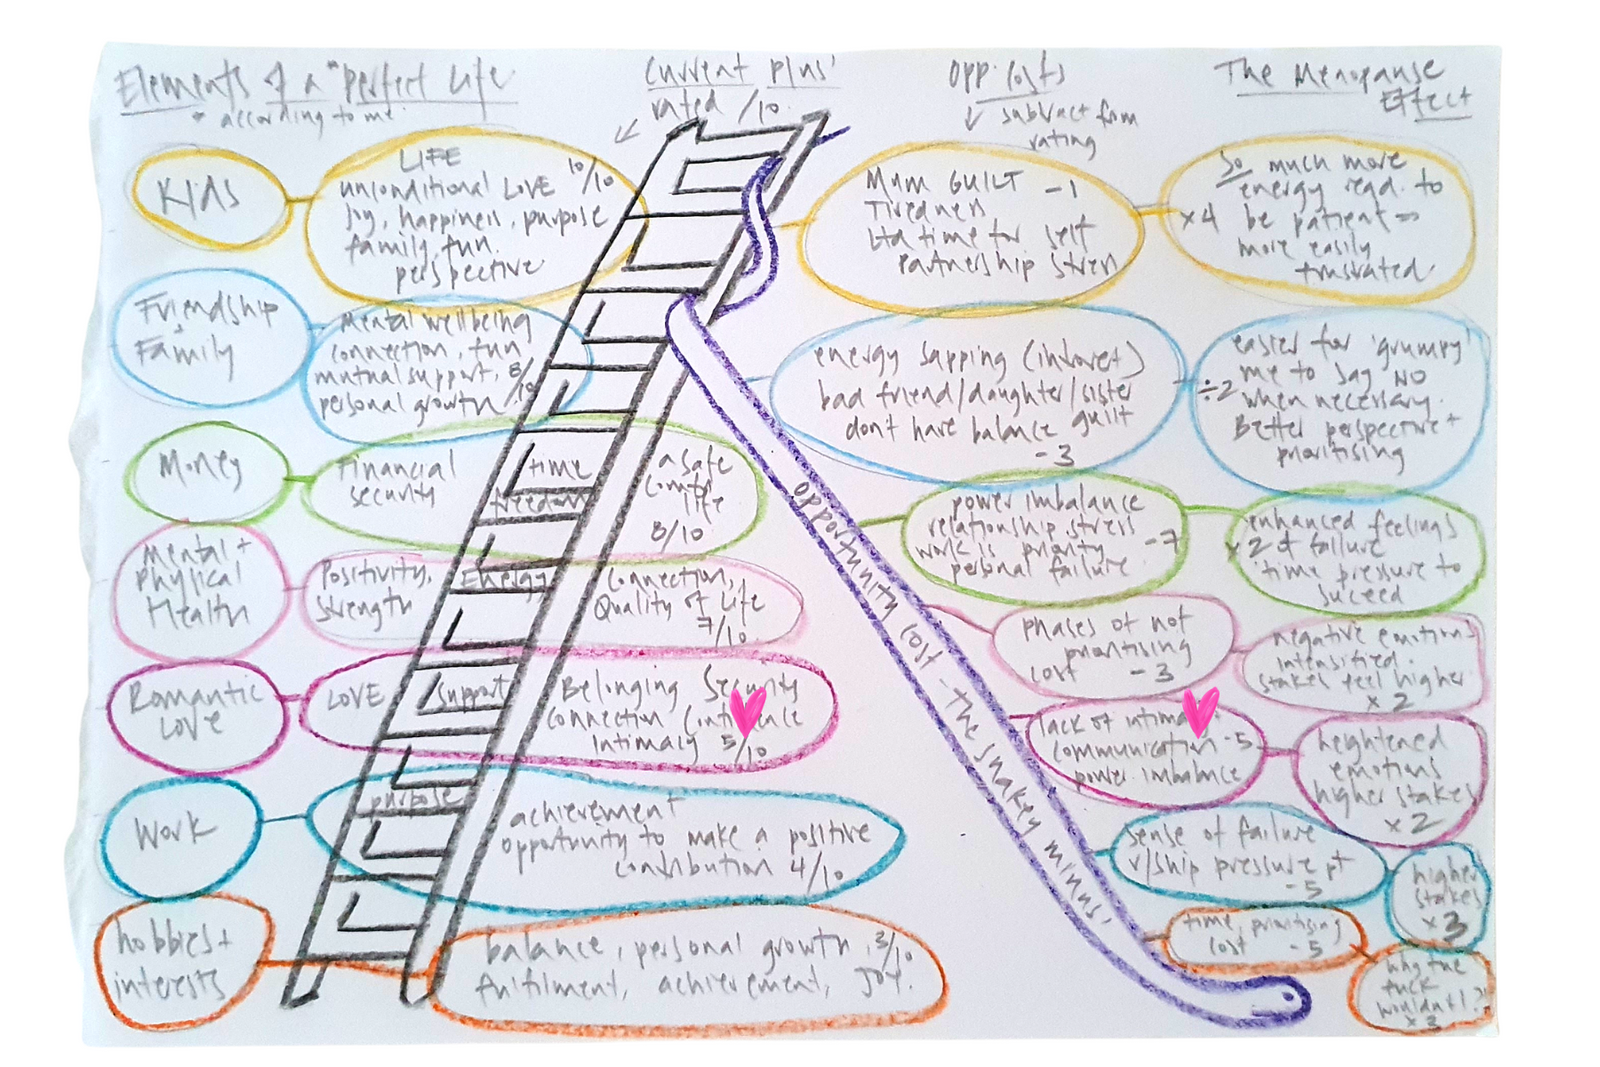 Elements of a "perfect Life
* according to me
Current 'plus'
rated /10
Opp. Costs
subtract from
rating
The Menopause
Effect
Kids
LIFE
unconditional LOVE 10/10
joy, happiness, purpose
family, fun.
perspective
Mum GUILT -1
Tiredness
Ltd time for self
Partnership stress
So much more
energy reqd. to
x4 be patient =
more easily
frustrated.
Friendship
+
Family
mental wellbeing
connection, fun
mutual support, 8/10
personal growth
energy sapping (introvert)
bad friend/daughter/sister
guilt
don't have balance
-3
easier for 'grumpy'
÷2 me to say NO
when necessary.
Better perspective +
prioritising
Money
Financial
security
time
freedom
a safe
comfy
life
8/10
power imbalance
relationship stress
work is priority -7
personal failure
enhanced feelings
x2 of failure
time pressure to
suceed
Mental +
Physical
Health
Positivity,
Strength
Energy
Connection,
Quality of Life
7/10
phases of not
prioritising
cost -3
negative emotions
intensified.
stakes feel higher
x2
Romantic
Love
LOVE
support
Belonging Security
connection
Intimacy 5/10
lack of
communication -5
power imbalance
heightened
emotions
higher stakes
x2
Work
purpose
achievement
opportunity to make a positive
contribution 4/10
sense of failure
r/ship pressure pt
-5
higher
stakes
x3
hobbies +
interests
balance, personal growth,
fulfilment, achievement, JOY.
time, prioritising
cost -5
why the
fuck
wouldn't I?!
opportunity cost - the snakey 'minus'